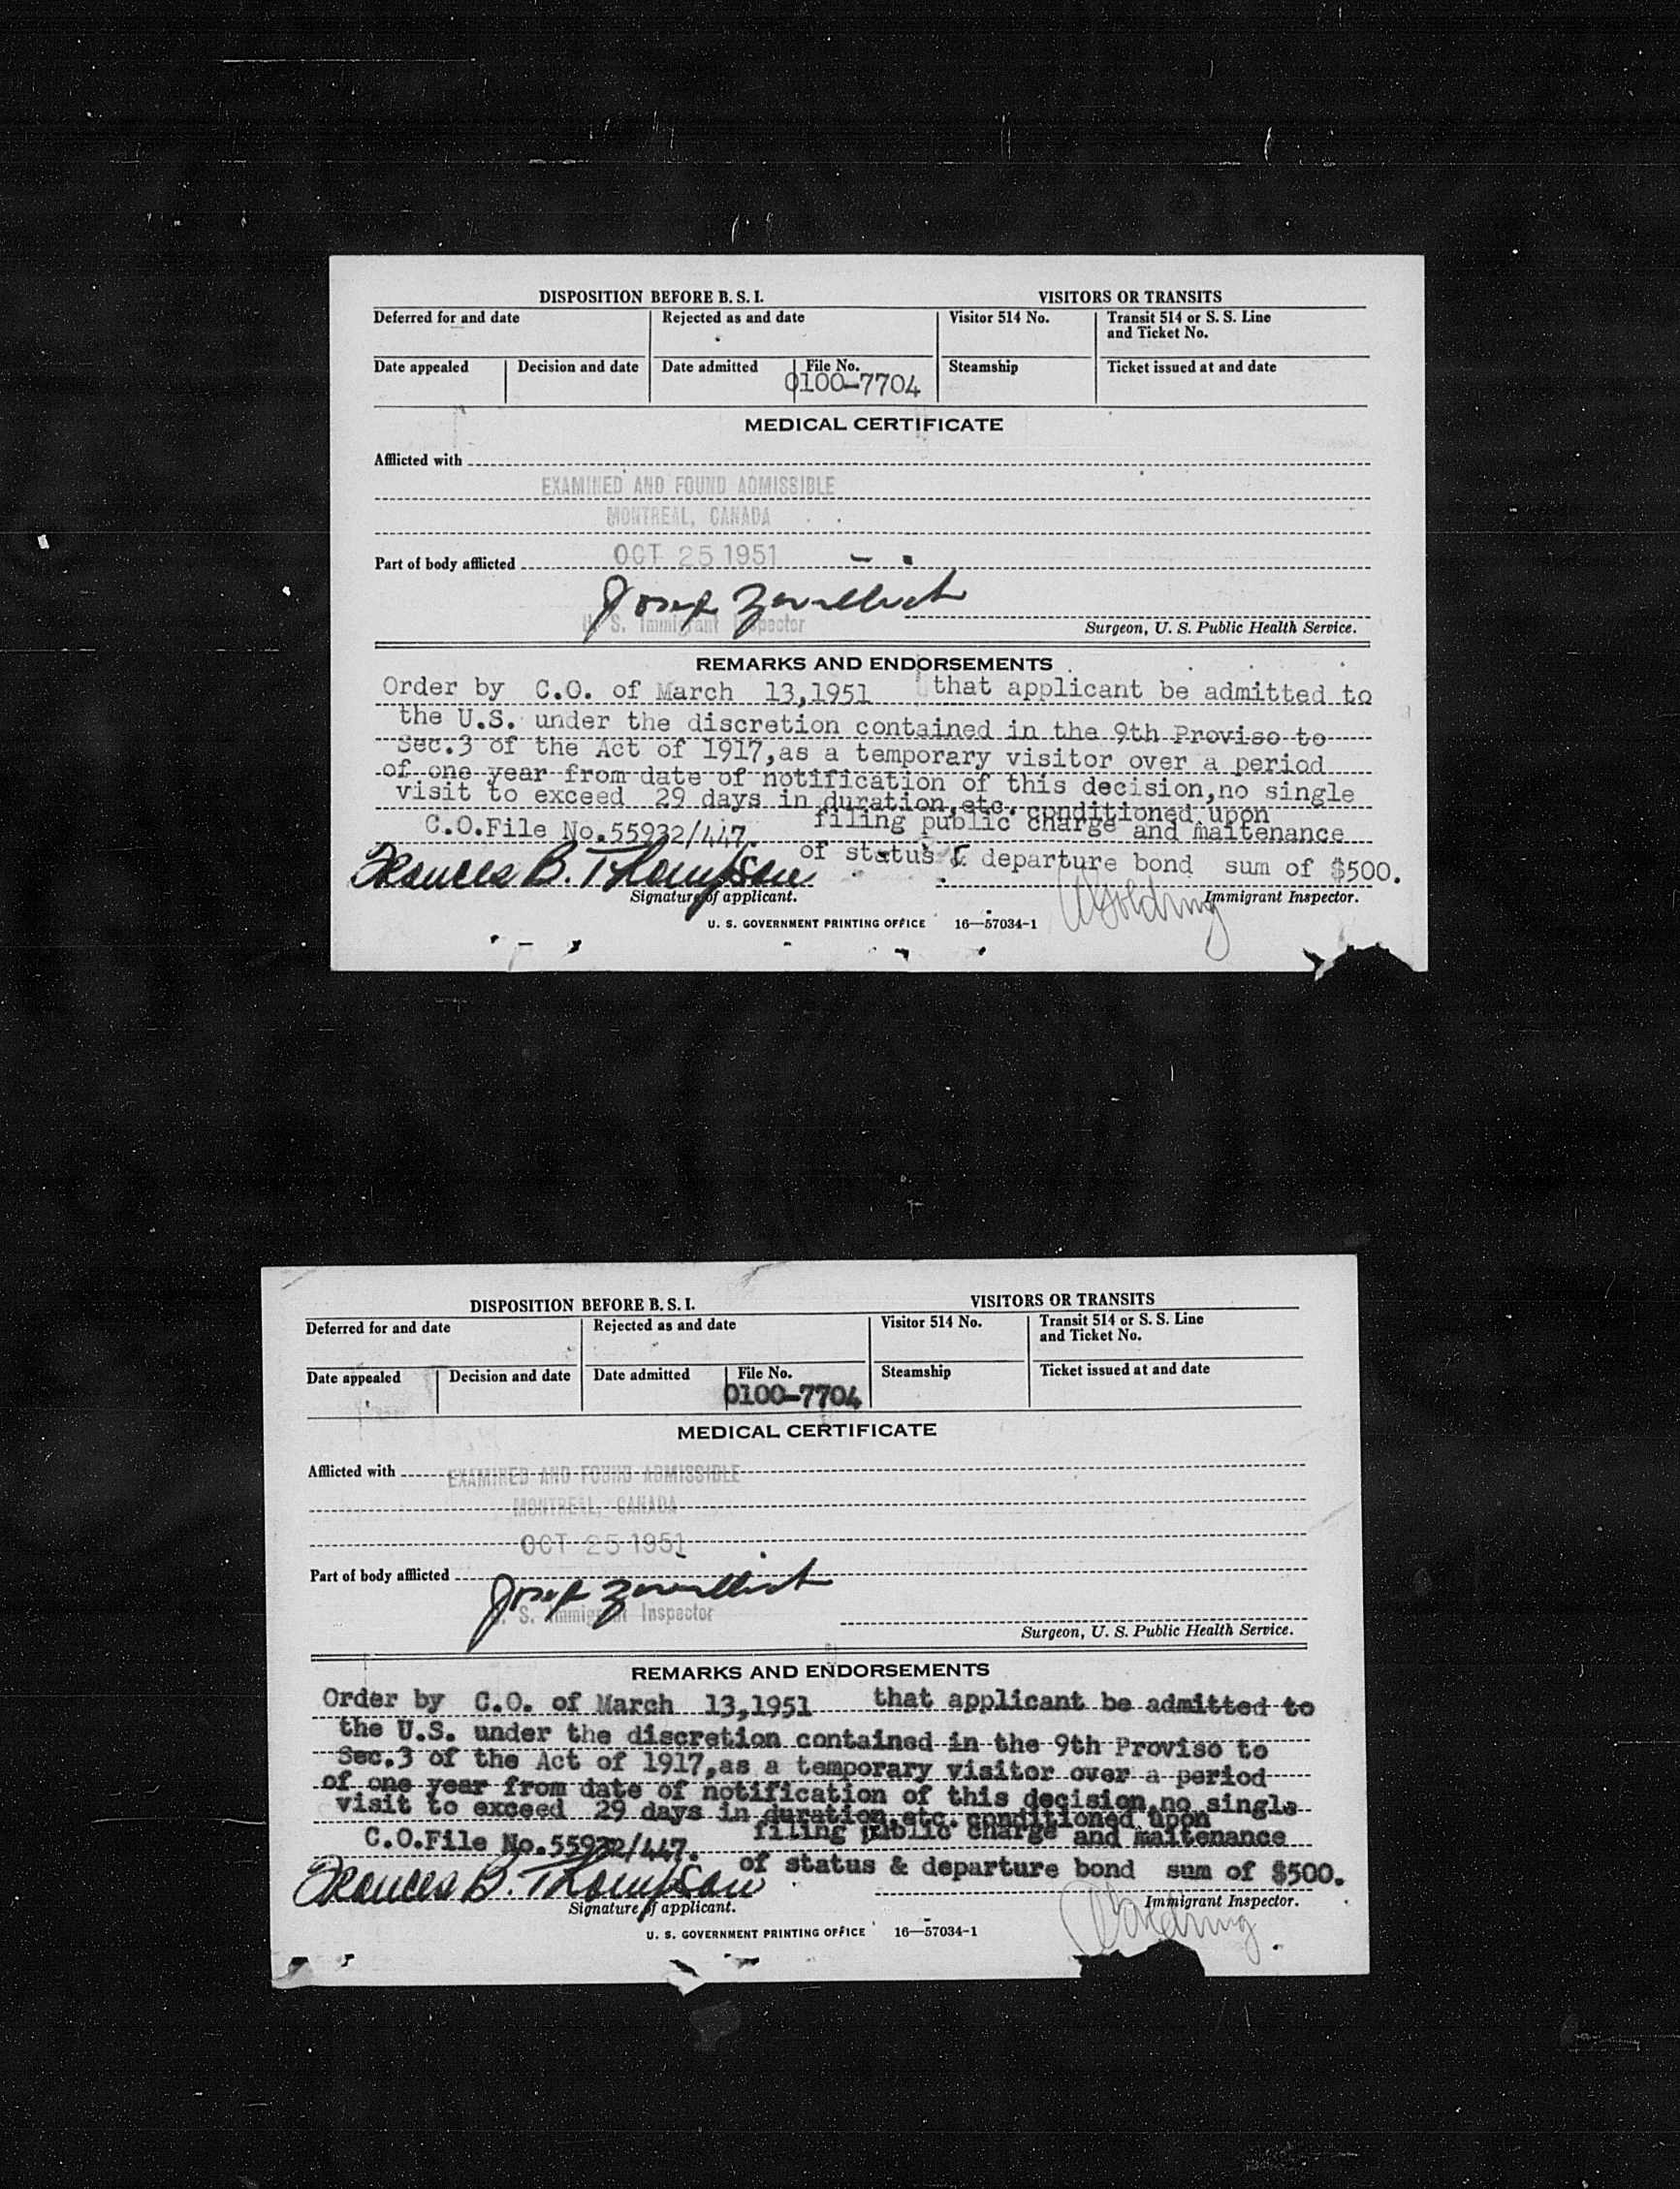 DISPOSITION BEFORE B. S. I. VISITORS OR TRANSITS
Deferred for and date Rejected as and date Visitor 514 No. Transit 514 or S. S. Line
and Ticket No.
Date appealed Decision and date Date admitted File No. Steamship Ticket issued at and date
0100-7704
MEDICAL CERTIFICATE
Afflicted with
EXAMINED AND FOUND ADMISSIBLE
MONTREAL, CANADA
Part of body afflicted OCT 25 1951
Josef
U. S. Immigrant Inspector
Surgeon, U. S. Public Health Service.
REMARKS AND ENDORSEMENTS
Order by C.O. of March 13,1951 that applicant be admitted to
the U.S. under the discretion contained in the 9th Proviso to
Sec.3 of the Act of 1917,as a temporary visitor over a period
of one year from date of notification of this decision,no single
visit to exceed 29 days in duration,etc. conditioned upon
filing public charge and maitenance
C.O.File No.55932/447.
of status & departure bond sum of $500.
Frances B. Thompson
Goldring
Signature of applicant. Immigrant Inspector.
U. S. GOVERNMENT PRINTING OFFICE 16—57034-1
DISPOSITION BEFORE B. S. I. VISITORS OR TRANSITS
Deferred for and date Rejected as and date Visitor 514 No. Transit 514 or S. S. Line
and Ticket No.
Date appealed Decision and date Date admitted File No. Steamship Ticket issued at and date
0100-7704
MEDICAL CERTIFICATE
Afflicted with EXAMINED AND FOUND ADMISSIBLE
MONTREAL, CANADA
OCT 25 1951
Part of body afflicted
Josef
U. S. Immigrant Inspector
Surgeon, U. S. Public Health Service.
REMARKS AND ENDORSEMENTS
Order by C.O. of March 13,1951 that applicant be admitted to
the U.S. under the discretion contained in the 9th Proviso to
Sec.3 of the Act of 1917,as a temporary visitor over a period
of one year from date of notification of this decision,no single
visit to exceed 29 days in duration,etc. conditioned upon
filing public charge and maitenance
C.O.File No.55932/447.
of status & departure bond sum of $500.
Frances B. Thompson
Goldring
Signature of applicant. Immigrant Inspector.
U. S. GOVERNMENT PRINTING OFFICE 16—57034-1